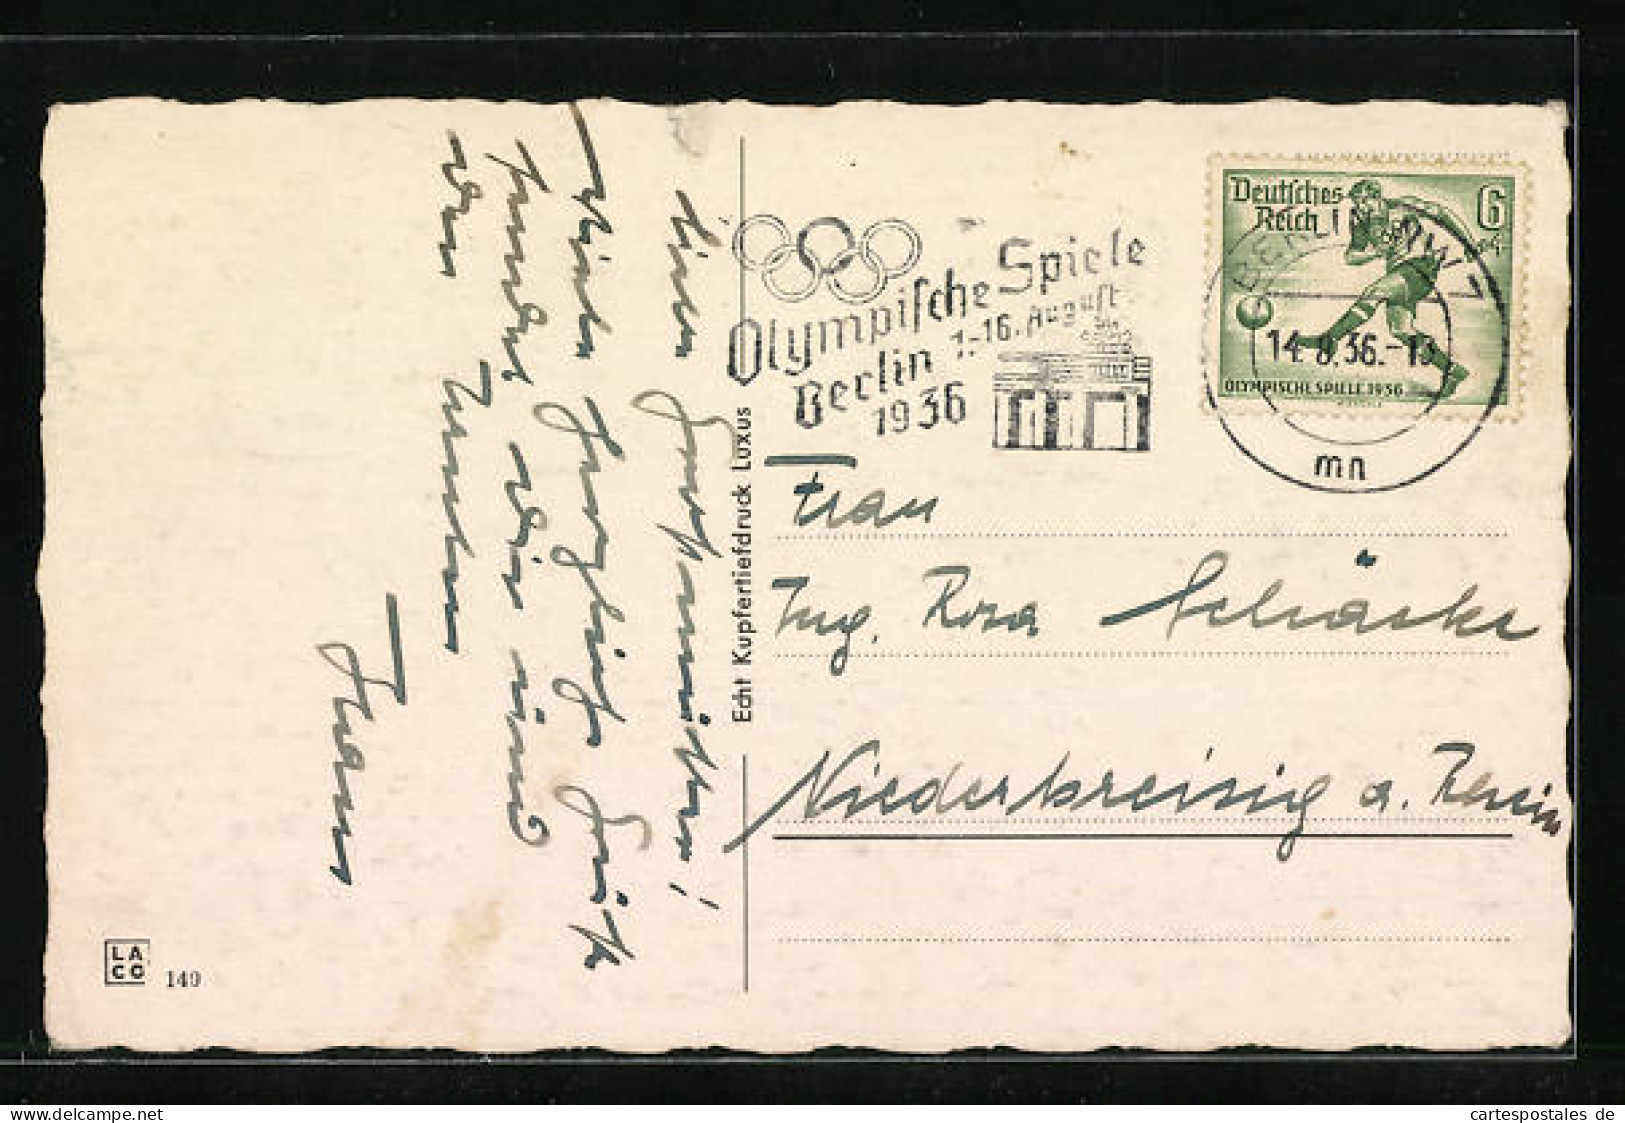 Mein
Viele herzliche Grüße
sendet Dir und
den
Hans
Echt Kupfertiefdruck Luxus
LA
CO
140
Olympische Spiele
Berlin 1.-16. August
1936
Deutsches
Reich
6
OLYMPISCHE SPIELE 1936
BERLIN NW 7
14.8.36.-13
mn
Frau
Ing. Rosa Schäcke
Niederbreisig a. Rhein
delcampe.net
cartespostales de